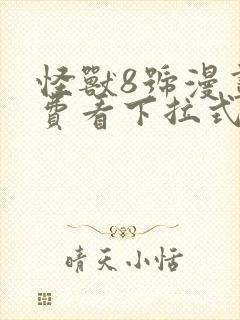 怪獸8號漫
費看下拉式
晴天小恬